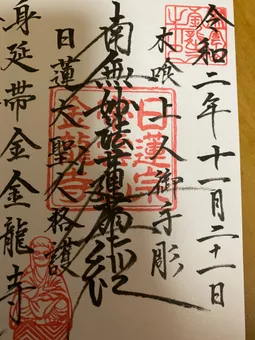 令和二年十一月二一日
木喰上人御手彫
南無妙法蓮華経
日蓮大聖人格護
身延帯金金龍寺
日蓮宗
金龍寺